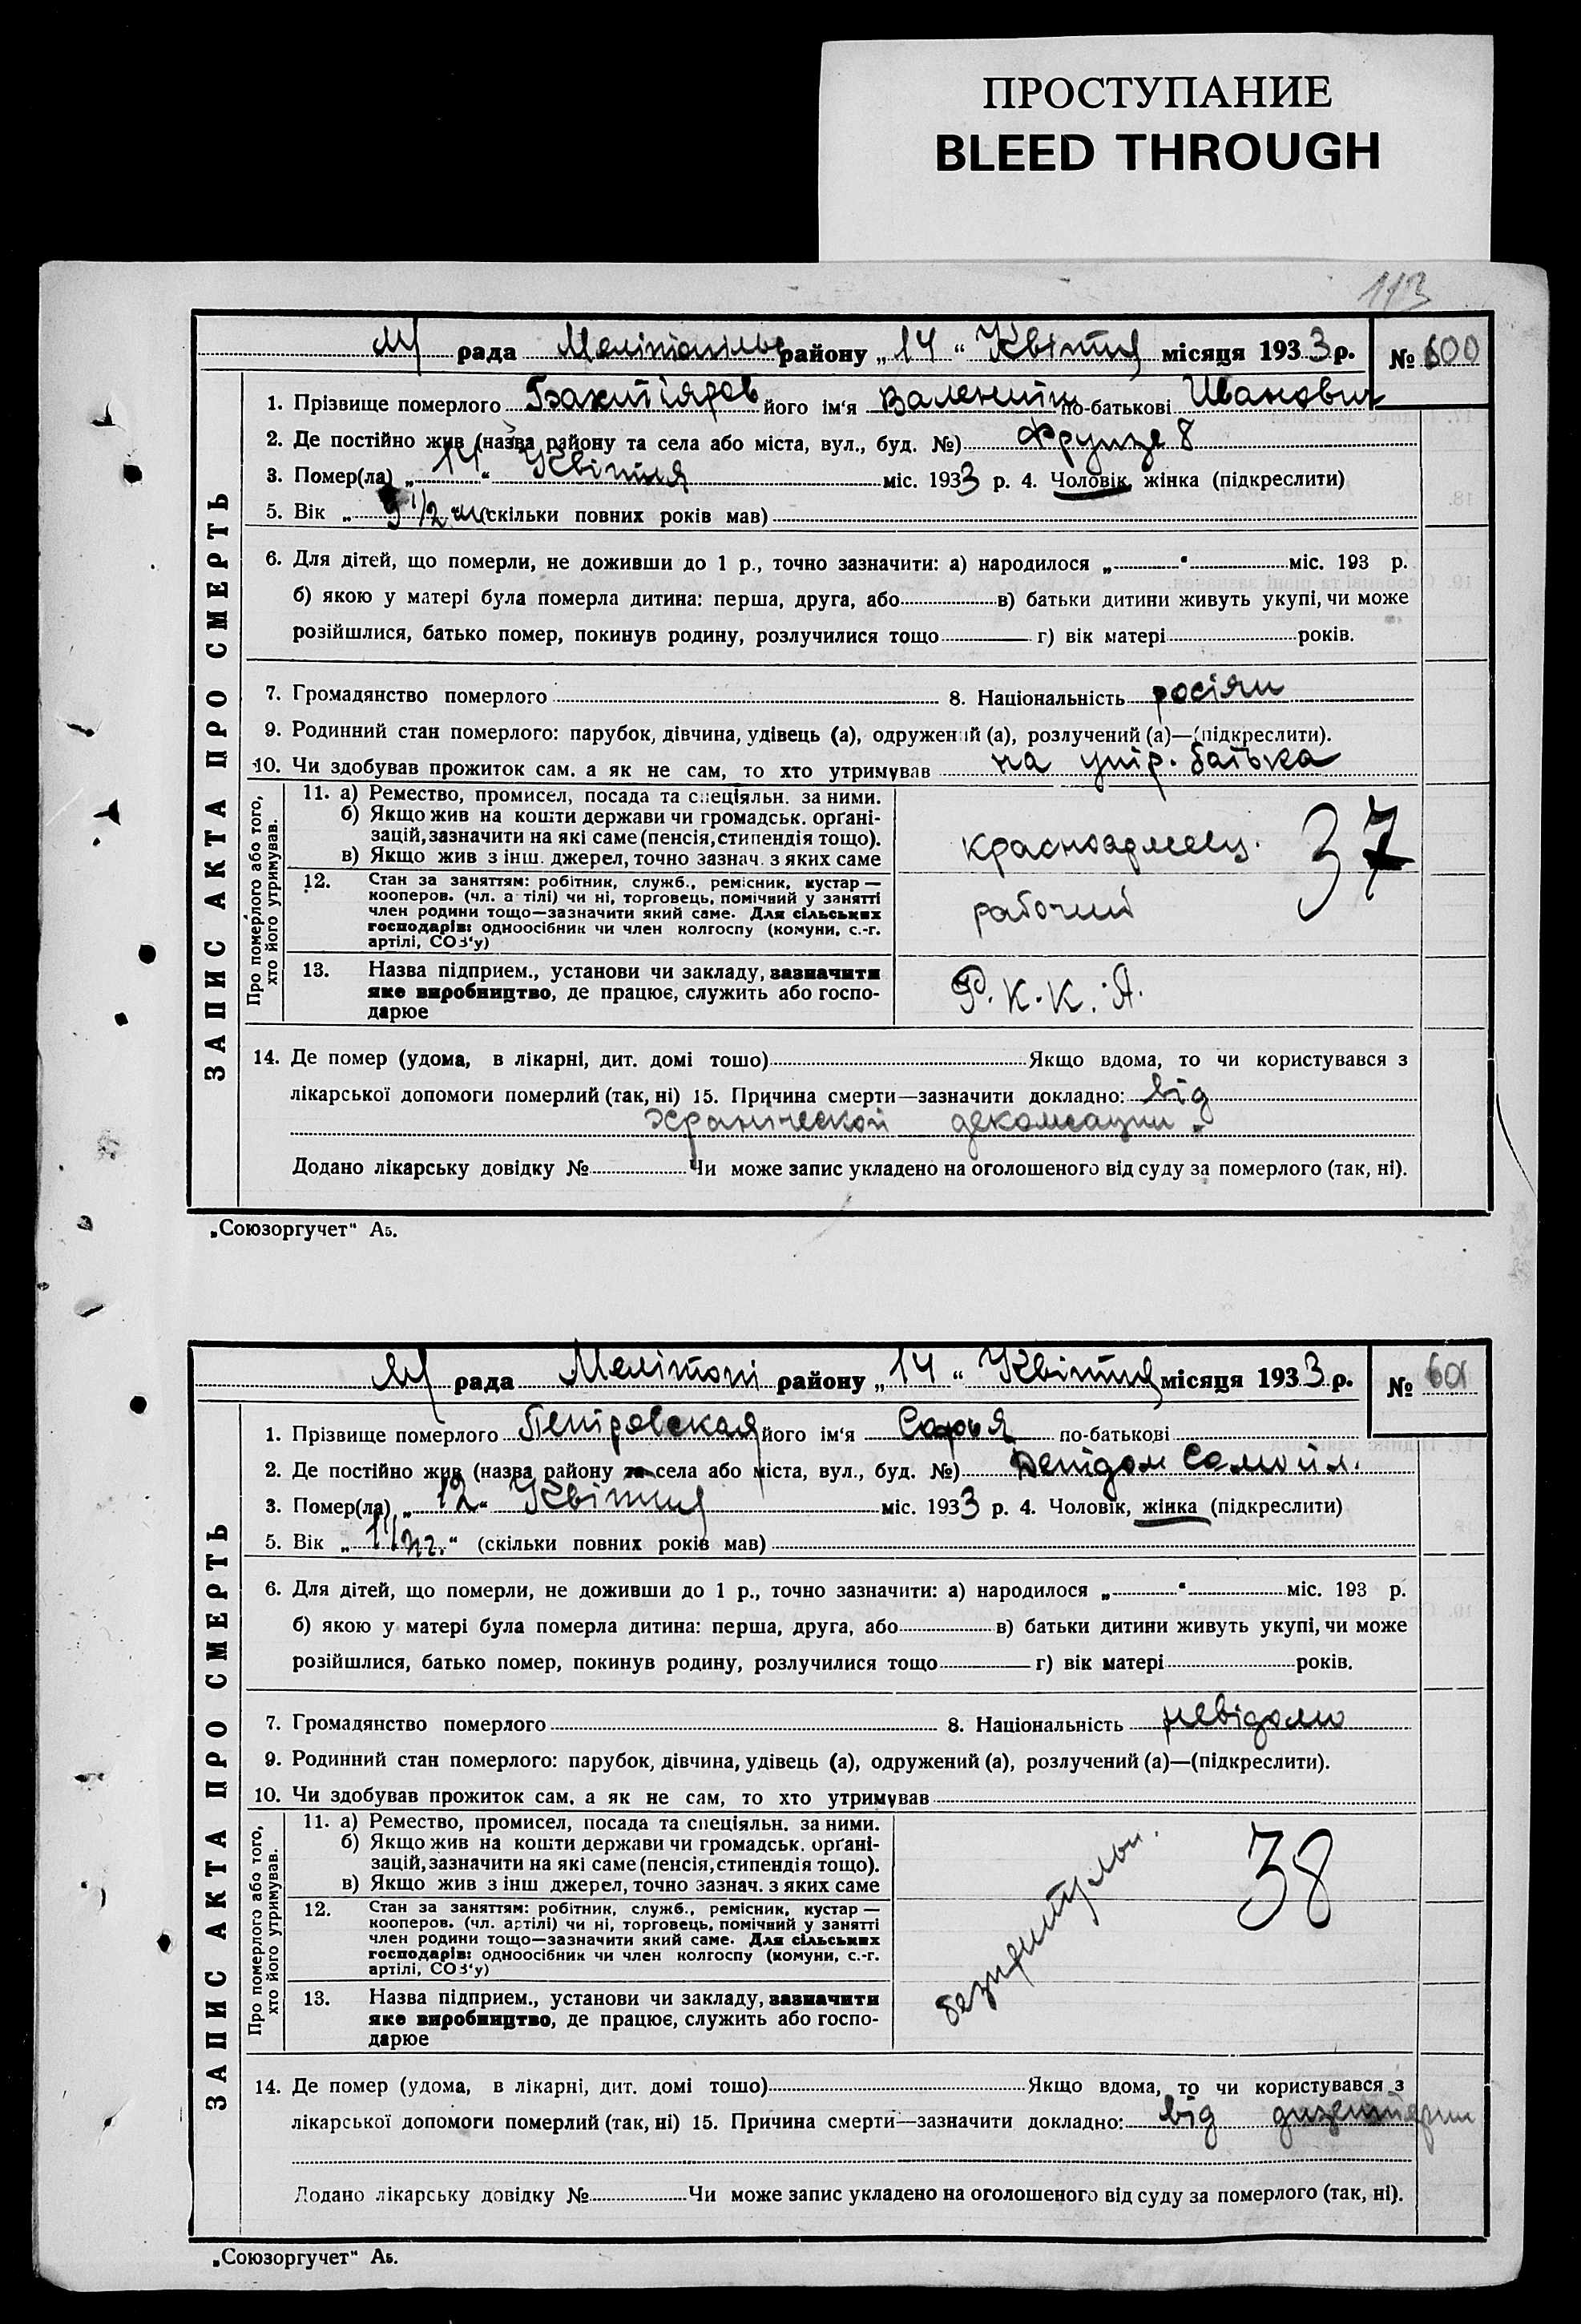 ПРОСТУПАНИЕ
BLEED THROUGH
113
М рада Мелітопільс району „14“ Квітня місяця 1933 р. № 600
ЗАПИС АКТА ПРО СМЕРТЬ
1. Прізвище померлого Бахтіяров його ім‘я Валентин по-батькові Иванович
2. Де постійно жив (назва району та села або міста, вул., буд. №) Фрунзе 8
3. Помер(ла) „14“ Квітня міс. 1933 р. 4. Чоловік, жінка (підкреслити)
5. Вік „9 1/2 м (скільки повних років мав)
6. Для дітей, що померли, не доживши до 1 р., точно зазначити: а) народилося „ “ міс. 193 р.
б) якою у матері була померла дитина: перша, друга, або в) батьки дитини живуть укупі, чи може
розійшлися, батько помер, покинув родину, розлучилися тощо г) вік матері років.
7. Громадянство померлого 8. Національність росіян
9. Родинний стан померлого: парубок, дівчина, удівець (а), одружений (а), розлучений (а)—(підкреслити).
10. Чи здобував прожиток сам, а як не сам, то хто утримував на утр. батька
Про померлого або того, хто його утримував.
11. а) Ремество, промисел, посада та спеціяльн. за ними.
б) Якщо жив на кошти держави чи громадськ. орґані-
зацій, зазначити на які саме (пенсія, стипендія тощо).
в) Якщо жив з інш. джерел, точно зазнач. з яких саме
красноармеец. 37
12. Стан за заняттям: робітник, служб., ремісник, кустар —
кооперов. (чл. артілі) чи ні, торговець, помічний у занятті
член родини тощо—зазначити який саме. Для сільських
господарів: одноосібник чи член колгоспу (комуни, с.-г.
артілі, СОЗ‘у)
рабочий
13. Назва підприєм., установи чи закладу, зазначити
яке виробництво, де працює, служить або госпо-
дарює
Р.К.К.А.
14. Де помер (удома, в лікарні, дит. домі тощо) Якщо вдома, то чи користувався з
лікарської допомоги померлий (так, ні) 15. Причина смерти—зазначити докладно: від
хранической
Додано лікарську довідку № Чи може запис укладено на оголошеного від суду за померлого (так, ні).
„Союзоргучет“ А5.
М рада Мелітопі району „14“ Квітня місяця 1933 р. № 601
ЗАПИС АКТА ПРО СМЕРТЬ
1. Прізвище померлого Петровская його ім‘я Софья по-батькові
2. Де постійно жив (назва району та села або міста, вул., буд. №) Дитдом
3. Помер(ла) „12“ Квітня міс. 1933 р. 4. Чоловік, жінка (підкреслити)
5. Вік „1 1/2 г.“ (скільки повних років мав)
6. Для дітей, що померли, не доживши до 1 р., точно зазначити: а) народилося „ “ міс. 193 р.
б) якою у матері була померла дитина: перша, друга, або в) батьки дитини живуть укупі, чи може
розійшлися, батько помер, покинув родину, розлучилися тощо г) вік матері років.
7. Громадянство померлого 8. Національність невідомо
9. Родинний стан померлого: парубок, дівчина, удівець (а), одружений (а), розлучений (а)—(підкреслити).
10. Чи здобував прожиток сам, а як не сам, то хто утримував
Про померлого або того, хто його утримував.
11. а) Ремество, промисел, посада та спеціяльн. за ними.
б) Якщо жив на кошти держави чи громадськ. орґані-
зацій, зазначити на які саме (пенсія, стипендія тощо).
в) Якщо жив з інш джерел, точно зазнач. з яких саме
38
12. Стан за заняттям: робітник, служб., ремісник, кустар —
кооперов. (чл. артілі) чи ні, торговець, помічний у занятті
член родини тощо—зазначити який саме. Для сільських
господарів: одноосібник чи член колгоспу (комуни, с.-г.
артілі, СОЗ‘у)
13. Назва підприєм., установи чи закладу, зазначити
яке виробництво, де працює, служить або госпо-
дарює
14. Де помер (удома, в лікарні, дит. домі тощо) Якщо вдома, то чи користувався з
лікарської допомоги померлий (так, ні) 15. Причина смерти—зазначити докладно: від дизентерии
Додано лікарську довідку № Чи може запис укладено на оголошеного від суду за померлого (так, ні).
„Союзоргучет“ А5.